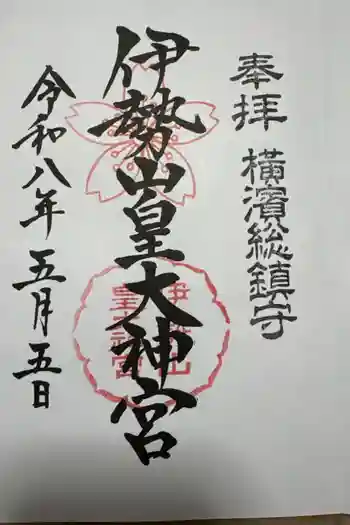 奉拝 横濱総鎮守
伊勢山皇大神宮
令和八年五月五日
伊勢山
皇大神宮